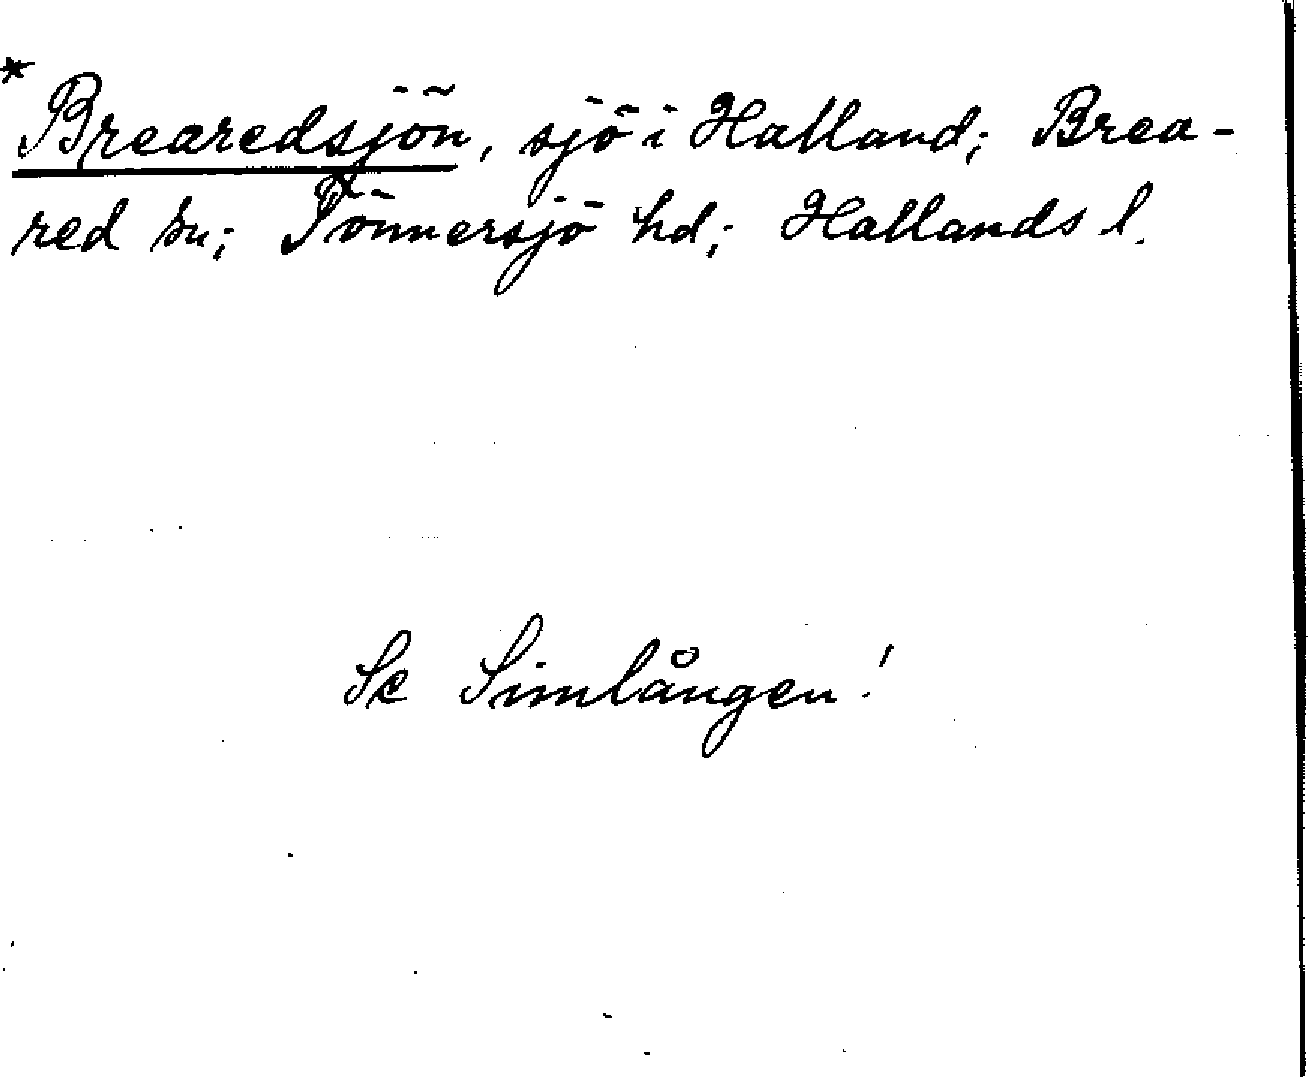 * Brearedsjön, sjö i Halland; Brea-
red sn; Tönnersjö hd; Hallands l.
Se Simlången!